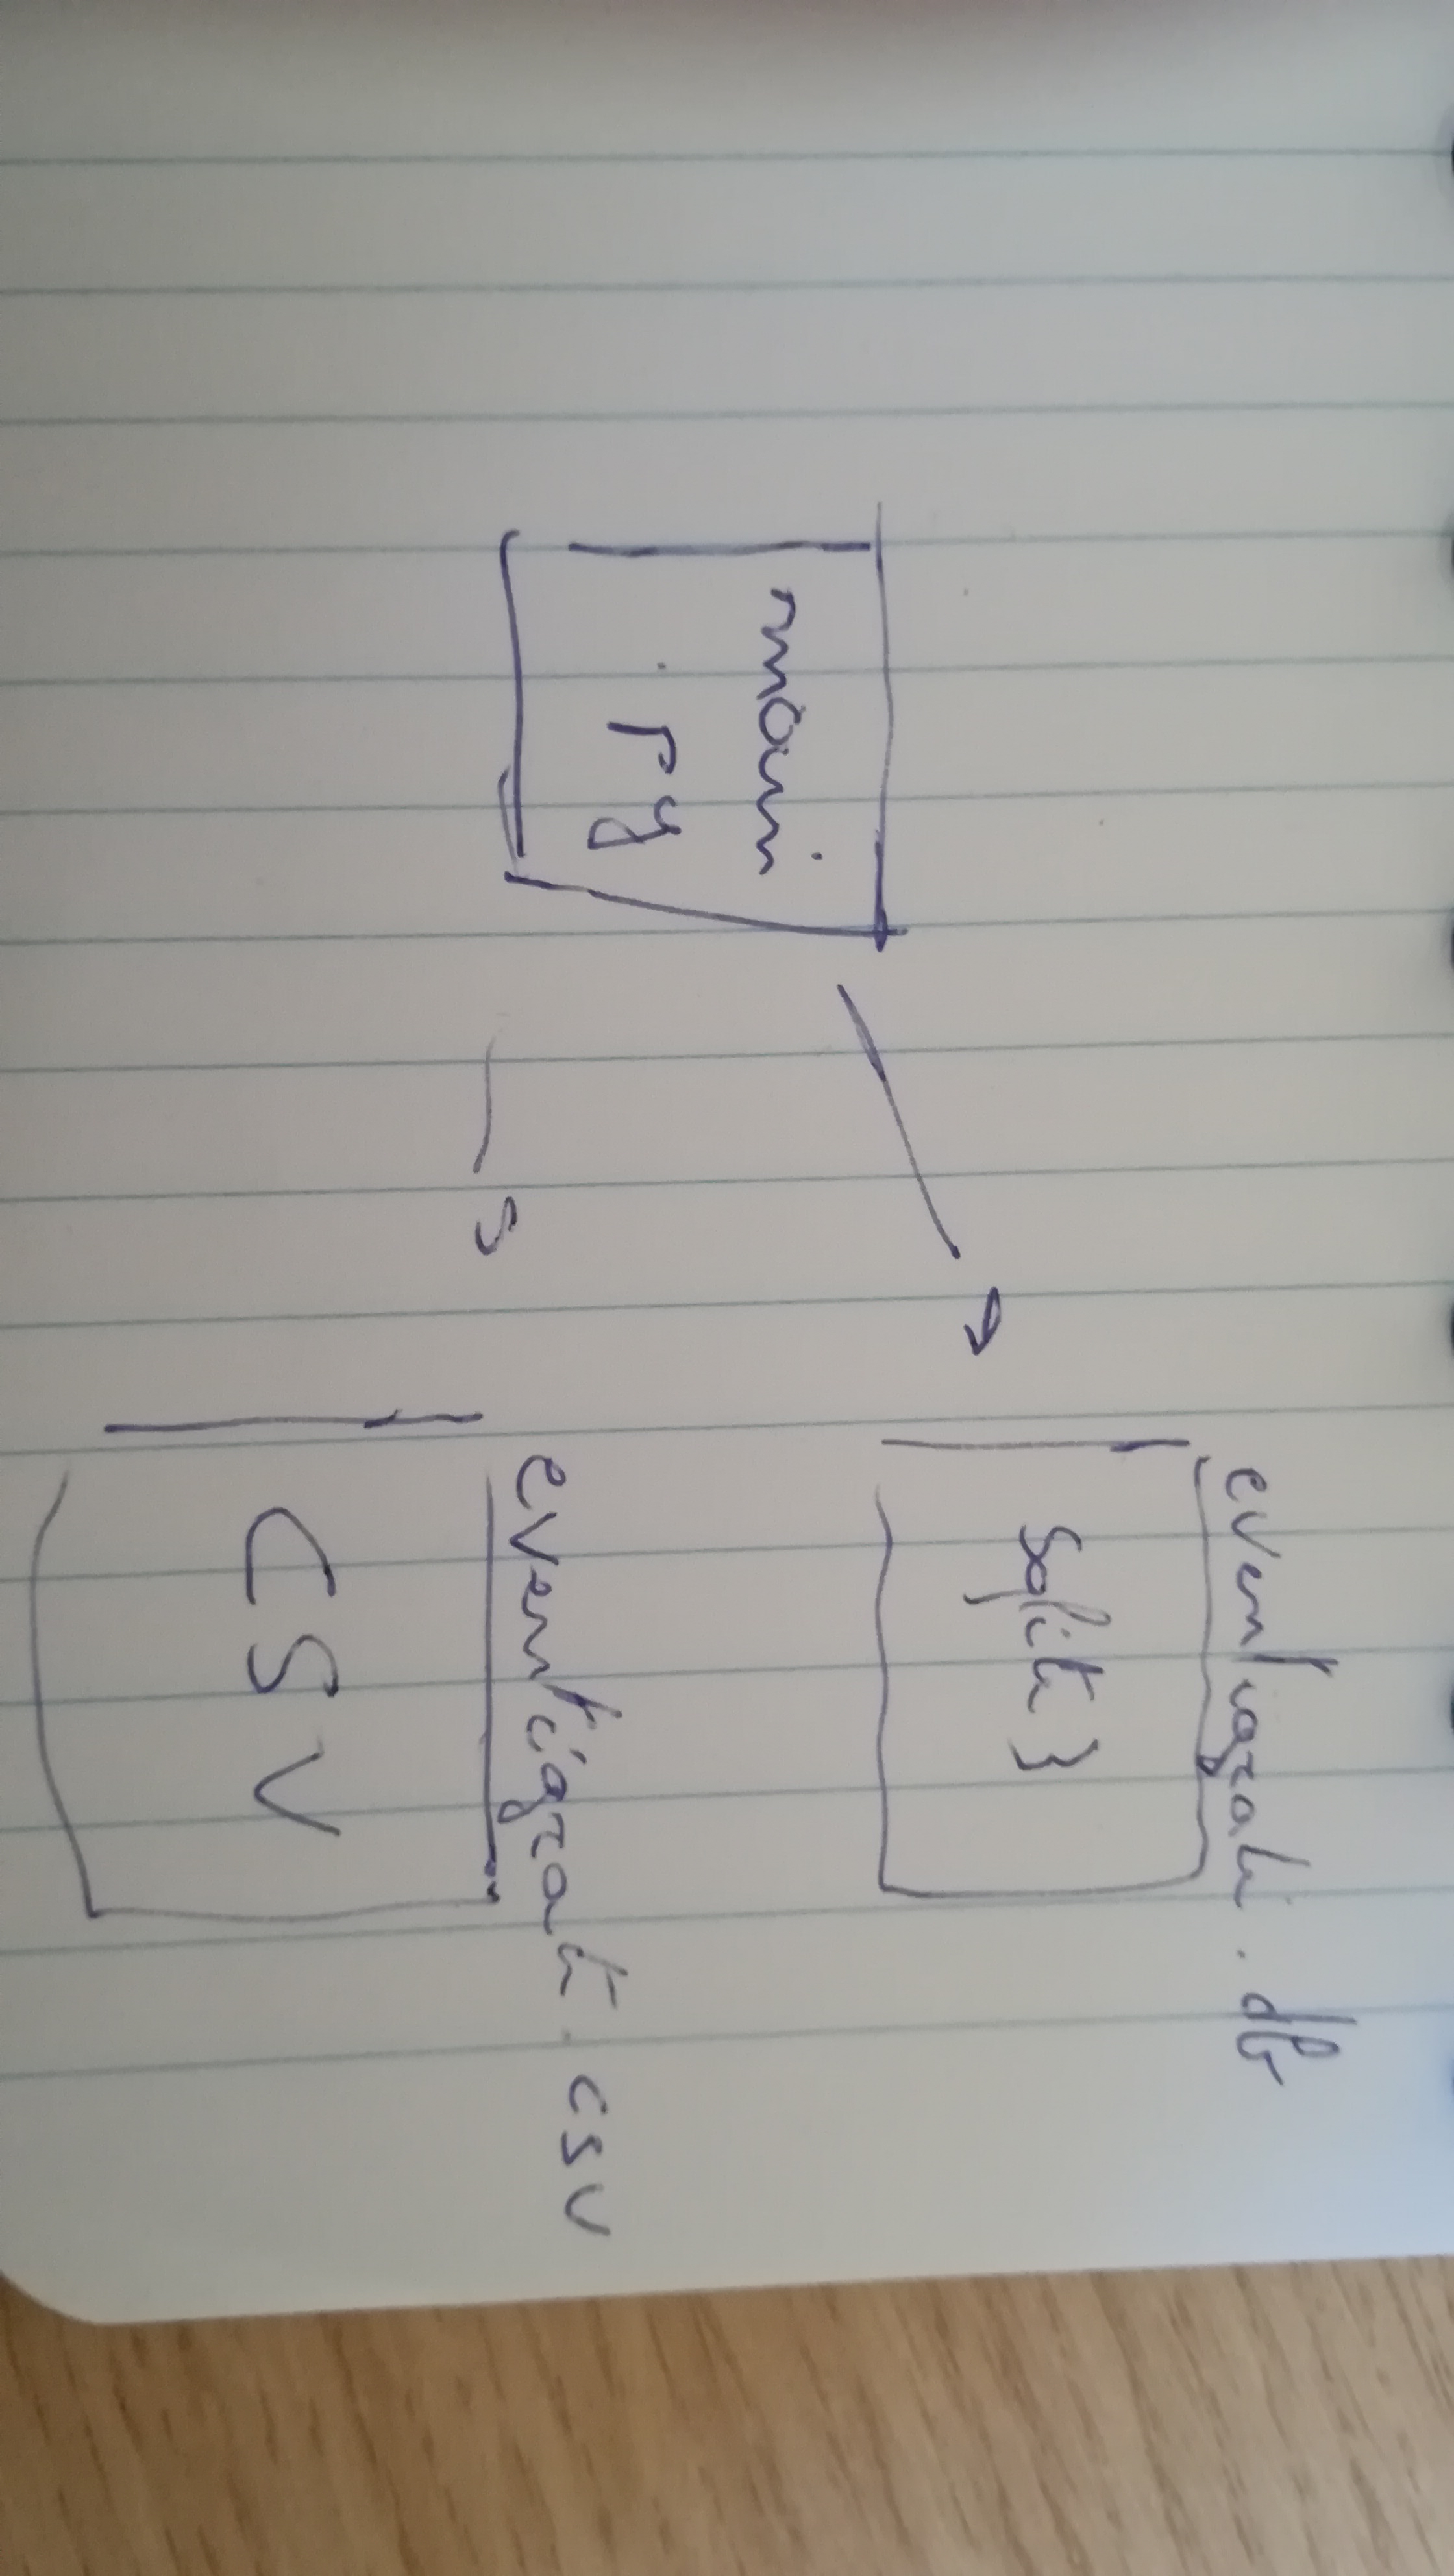 main
.py
eventazah.db
Sqlite3
eventiagzah.csv
CSV